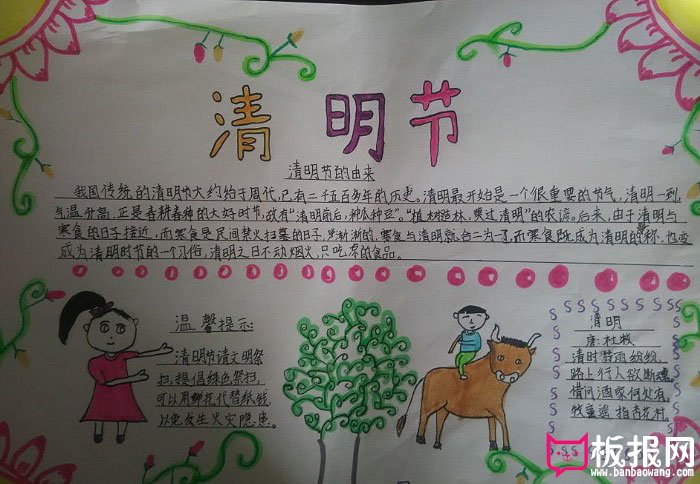 清明节
清明节的由来
我国传统的清明节大约始于周代,已有二千五百多年的历史。清明最开始是一个很重要的节气,清明一到,
气温升高,正是春耕春种的大好时节,故有“清明前后,种瓜种豆”。“植树造林,莫过清明”的农谚。后来,由于清明与
寒食的日子接近,而寒食是民间禁火扫墓的日子,渐渐的,寒食与清明就合二为一了,而寒食既成为清明的别称,也变
成为清明时节的一个习俗,清明之日不动烟火,只吃凉的食品。
温馨提示
清明节请文明祭
扫,提倡绿色祭扫,
可以用鲜花代替纸钱
以免发生火灾隐患。
清明
唐:杜牧
清时节雨纷纷,
路上行人欲断魂。
借问酒家何处有,
牧童遥指杏花村。
板报网
www.banbaowang.com